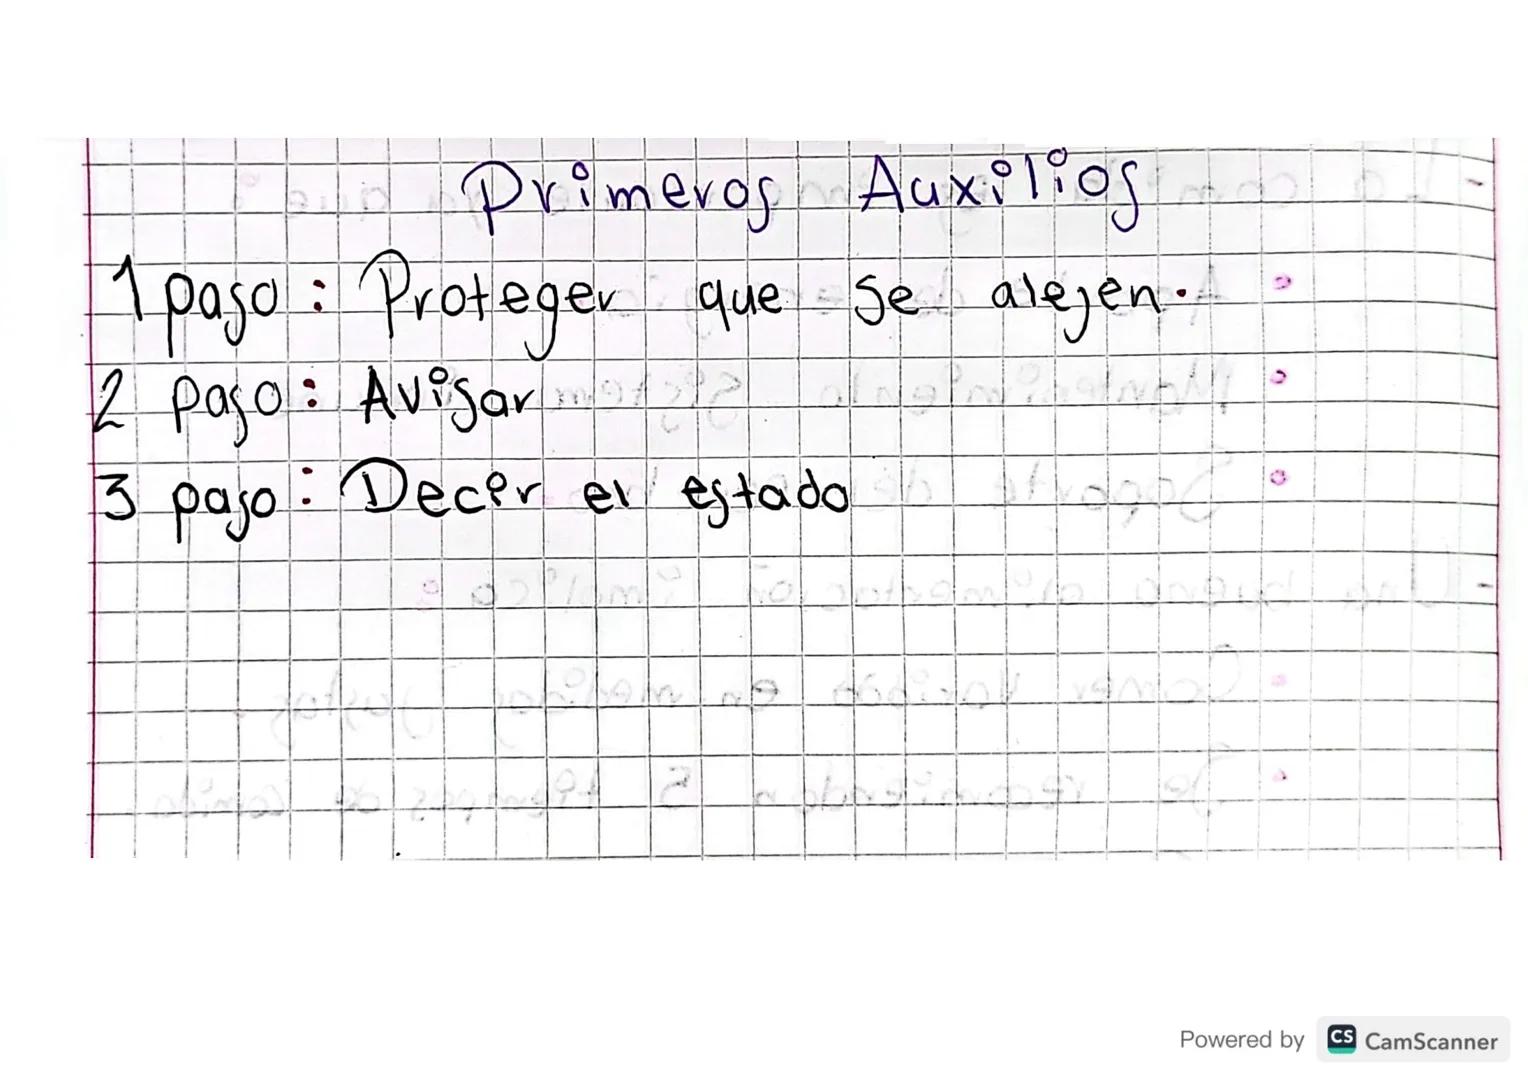 Primeros Auxilios
1 paso: Proteger que se alejen.
2 paso: Avisar
3 paso: Decir el estado
Powered by CS CamScanner